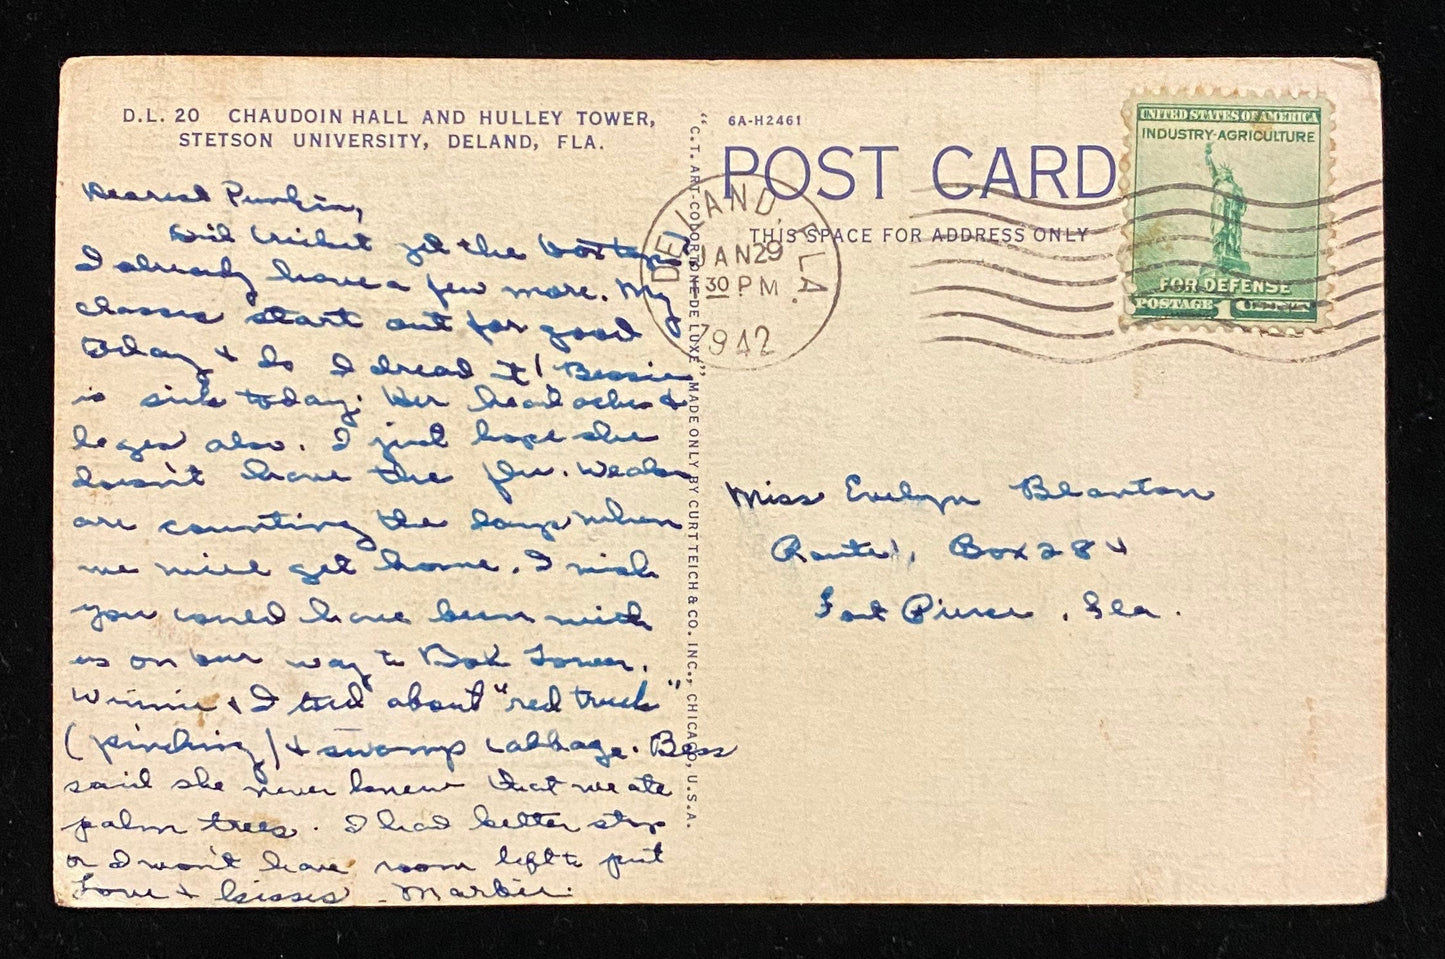 D.L. 20 CHAUDOIN HALL AND HULLEY TOWER,
STETSON UNIVERSITY, DELAND, FLA.
Dearest Punkin,
Did Cricket get the
I already have a few more. My
classes start out for good
today & do I dread it! Bessie
is sick today. Her head aches &
legs also. I just hope she
doesn't have the flu. We also
are counting the days when
we will get home. I wish
you could have been with
us on our way to Bok Tower.
Winnie & I told about "red truck"
(pinching) & swamp cabbage. Bess
said she never knew that we ate
palm trees. I had better stop
or I won't have room left to put
Love & kisses - Marbie.
"C.T. ART-COLORTONE DE LUXE" MADE ONLY BY CURT TEICH & CO. INC., CHICAGO, U.S.A.
6A-H2461
POST CARD
THIS SPACE FOR ADDRESS ONLY
DELAND, FLA.
JAN 29
30 PM
1942
UNITED STATES OF AMERICA
INDUSTRY-AGRICULTURE
FOR DEFENSE
POSTAGE 1 CENT
Miss Evelyn Blanton
Route 1, Box 284
Fort Pierce, Fla.